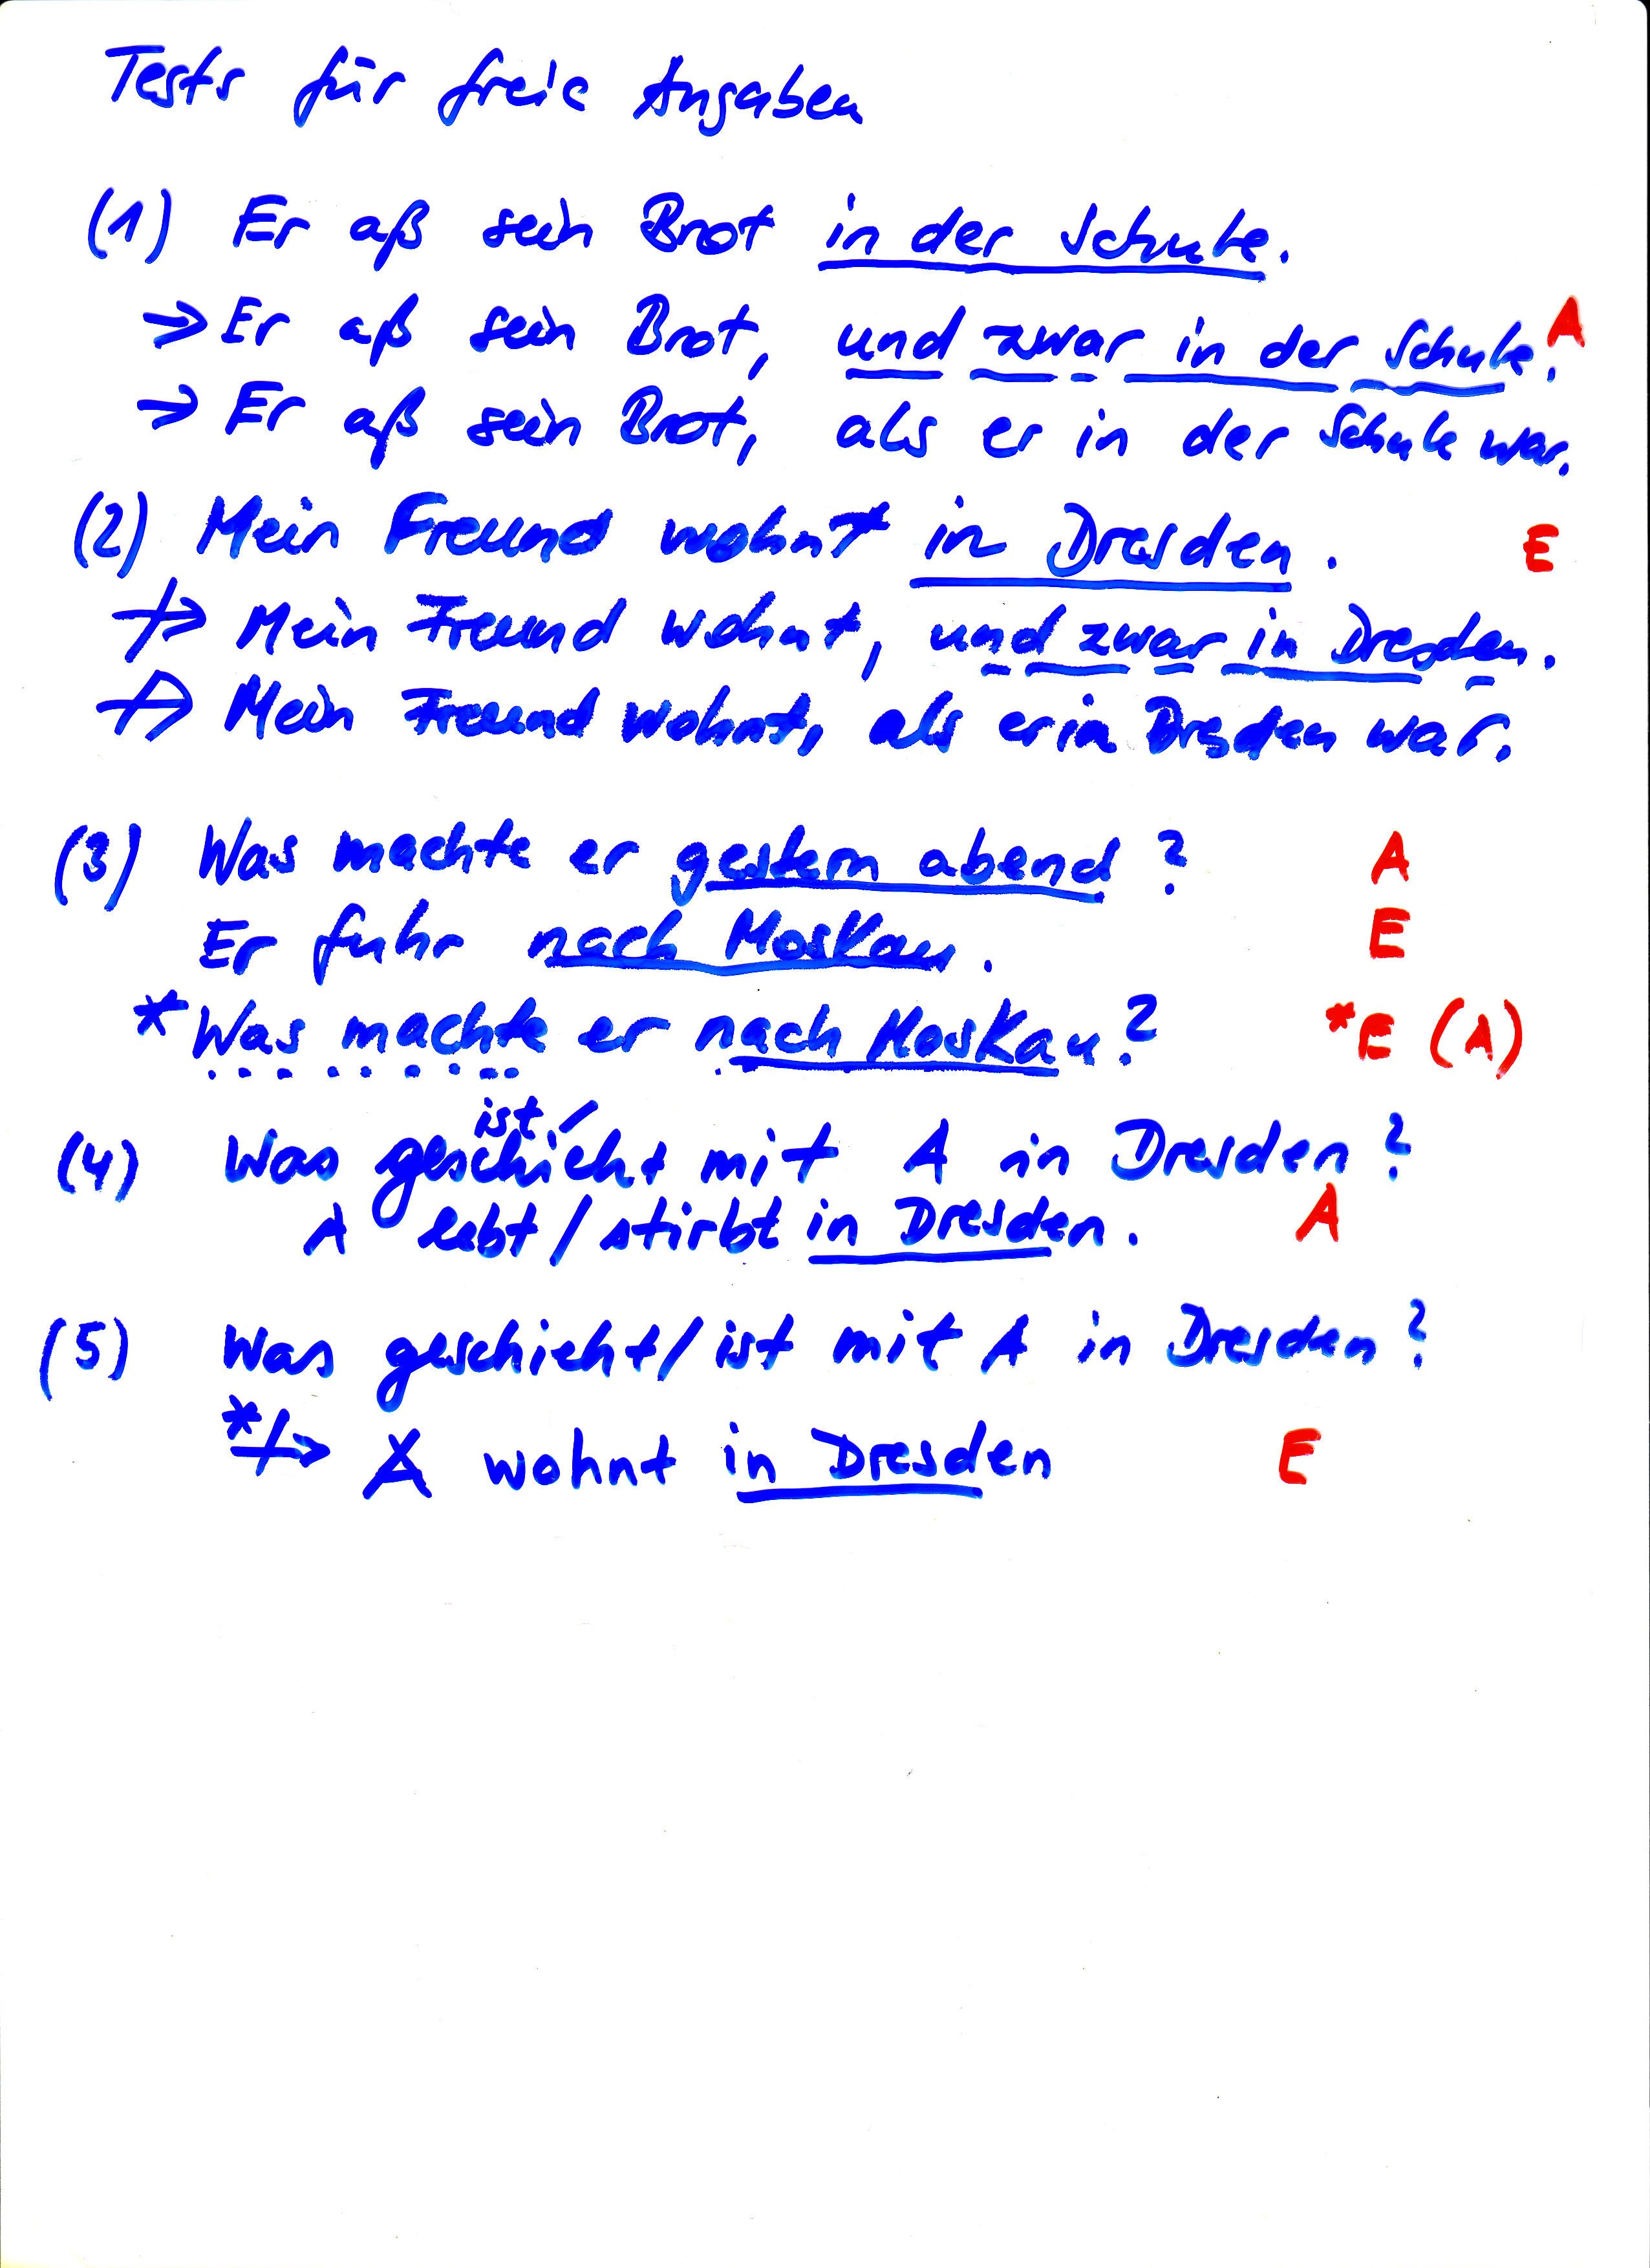 Tests für freie Angaben
(1) Er aß sein Brot in der Schule.
→ Er aß sein Brot, und zwar in der Schule. A
→ Er aß sein Brot, als er in der Schule war.
(2) Mein Freund wohnt in Dresden. E
↛ Mein Freund wohnt, und zwar in Dresden.
↛ Mein Freund wohnt, als er in Dresden war.
(3) Was machte er gestern abend? A
Er fuhr nach Moskau. E
*Was machte er nach Moskau? *E (A)
ist /
(4) Was geschieht mit A in Dresden?
A lebt/stirbt in Dresden. A
(5) Was geschieht/ist mit A in Dresden?
*↛ A wohnt in Dresden E